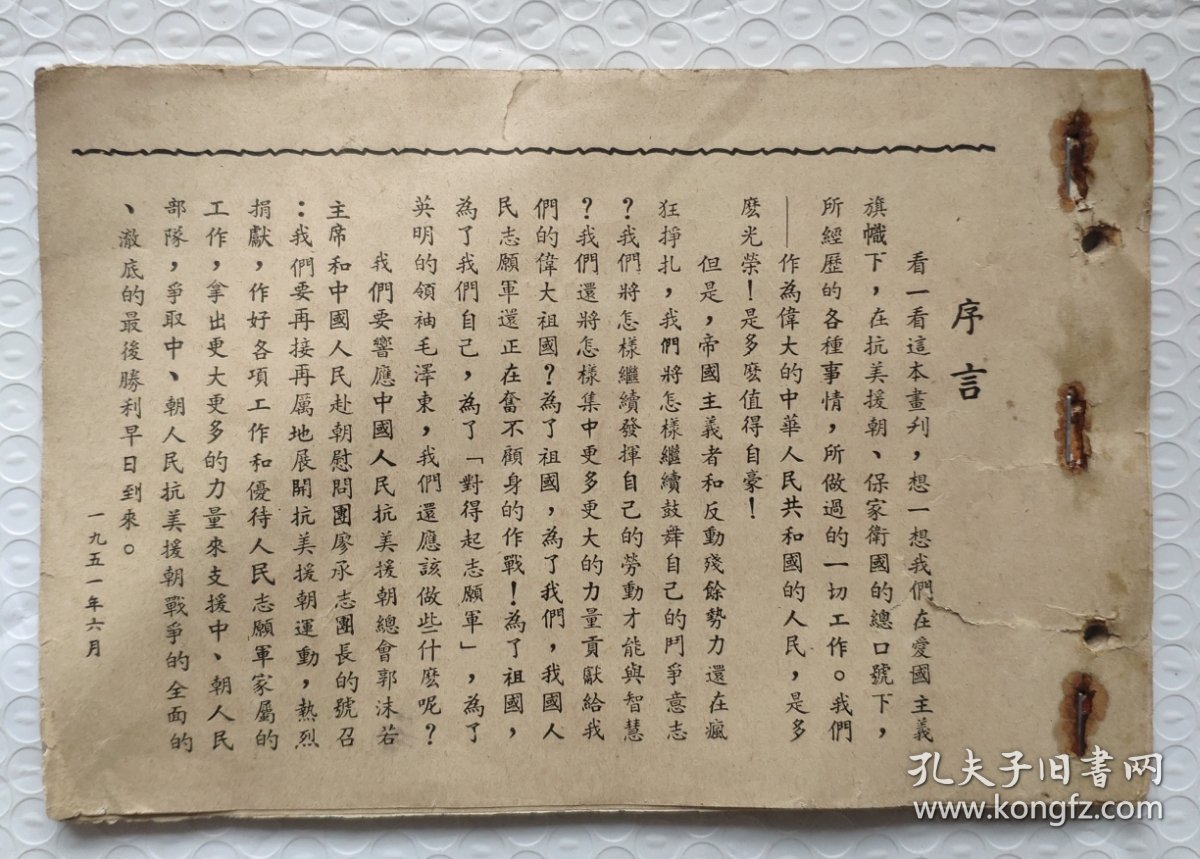 序言
看一看這本畫刋，想一想我們在愛國主義
旗幟下，在抗美援朝、保家衛國的總口號下，
所經歷的各種事情，所做過的一切工作。我們
——作為偉大的中華人民共和國的人民，是多
麽光榮！是多麽值得自豪！
但是，帝國主義者和反動殘餘勢力還在瘋
狂掙扎，我們將怎樣繼續鼓舞自己的鬥爭意志
？我們將怎樣繼續發揮自己的勞動才能與智慧
？我們還將怎樣集中更多更大的力量貢獻給我
們的偉大祖國？為了祖國，為了我們，我國人
民志願軍還正在奮不顧身的作戰！為了祖國，
為了我們自己，為了「對得起志願軍」，為了
英明的領袖毛澤東，我們還應該做些什麽呢？
我們要響應中國人民抗美援朝總會郭沫若
主席和中國人民赴朝慰問團廖承志團長的號召
：我們要再接再厲地展開抗美援朝運動，熱烈
捐獻，作好各項工作和優待人民志願軍家屬的
工作，拿出更大更多的力量來支援中、朝人民
部隊，爭取中、朝人民抗美援朝戰爭的全面的
、澈底的最後勝利早日到來。
一九五一年六月
孔夫子旧书网
www.kongfz.com